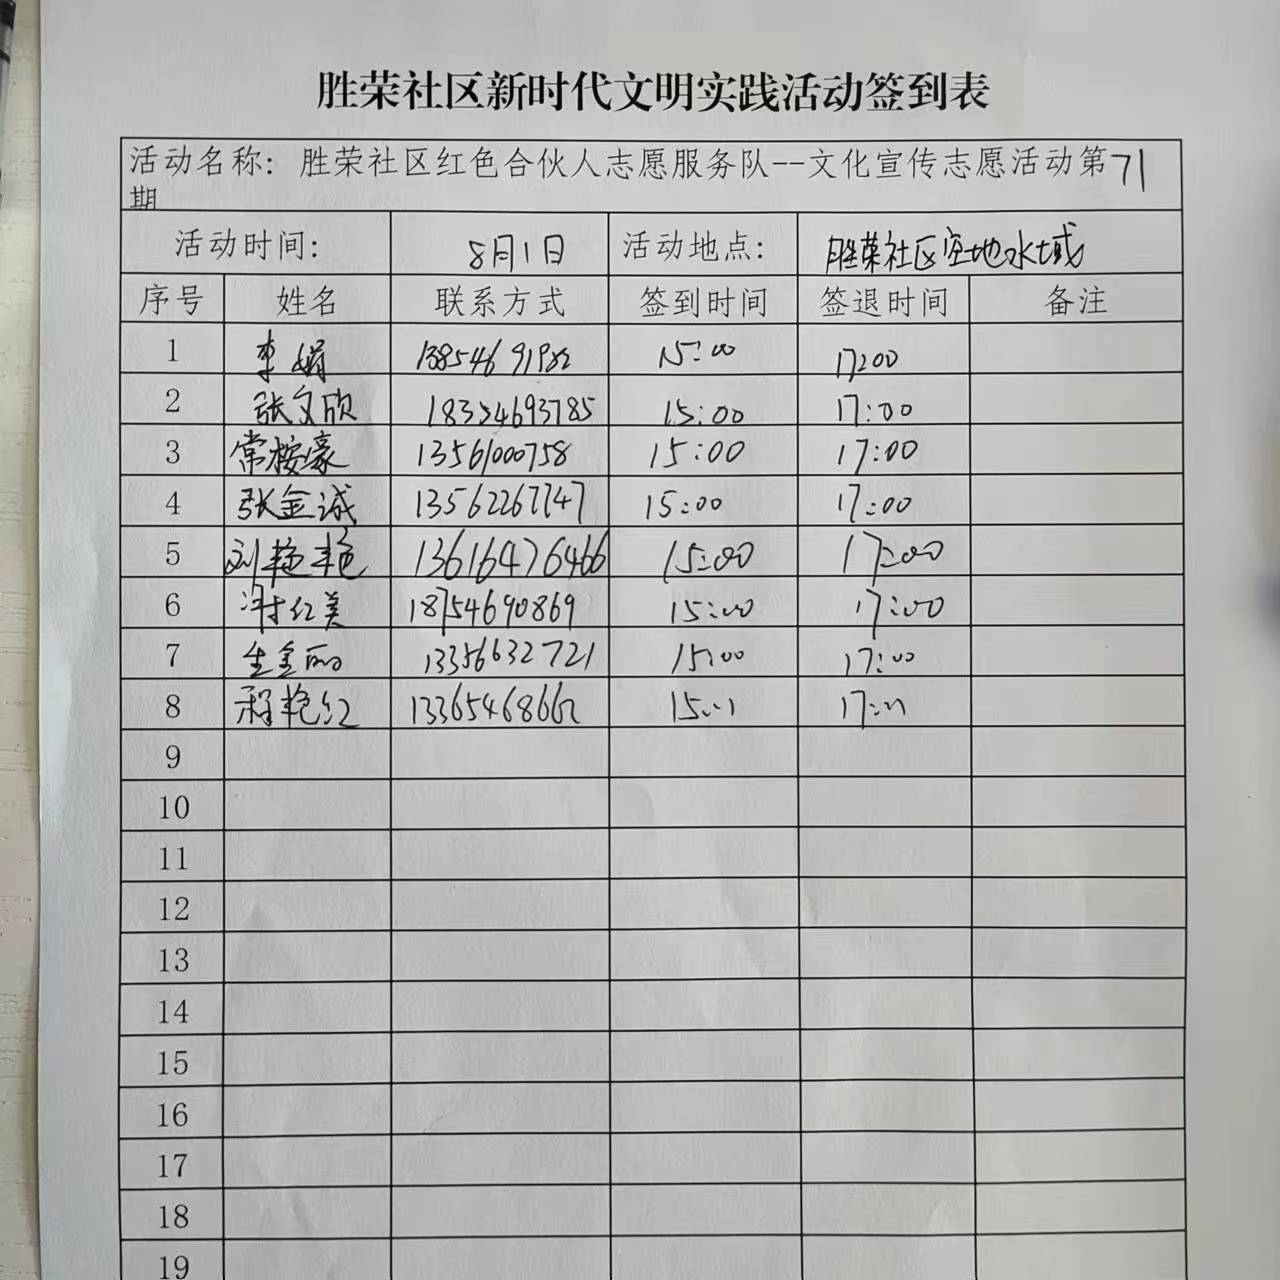 胜荣社区新时代文明实践活动签到表
活动名称：胜荣社区红色合伙人志愿服务队--文化宣传志愿活动第71
期
活动时间： 8月1日 活动地点： 胜荣社区空地水域
序号 姓名 联系方式 签到时间 签退时间 备注
1 李娟 13854691982 15:00 17:00
2 张文欣 18354693785 15:00 17:00
3 常桉豪 13561000758 15:00 17:00
4 张金诚 13562267747 15:00 17:00
5 刘艳艳 13616476466 15:00 17:00
6 红美 18754690869 15:00 17:00
7 生金丽 13356632721 15:00 17:00
8 程艳红 13365468662 15:00 17:00
9
10
11
12
13
14
15
16
17
18
19